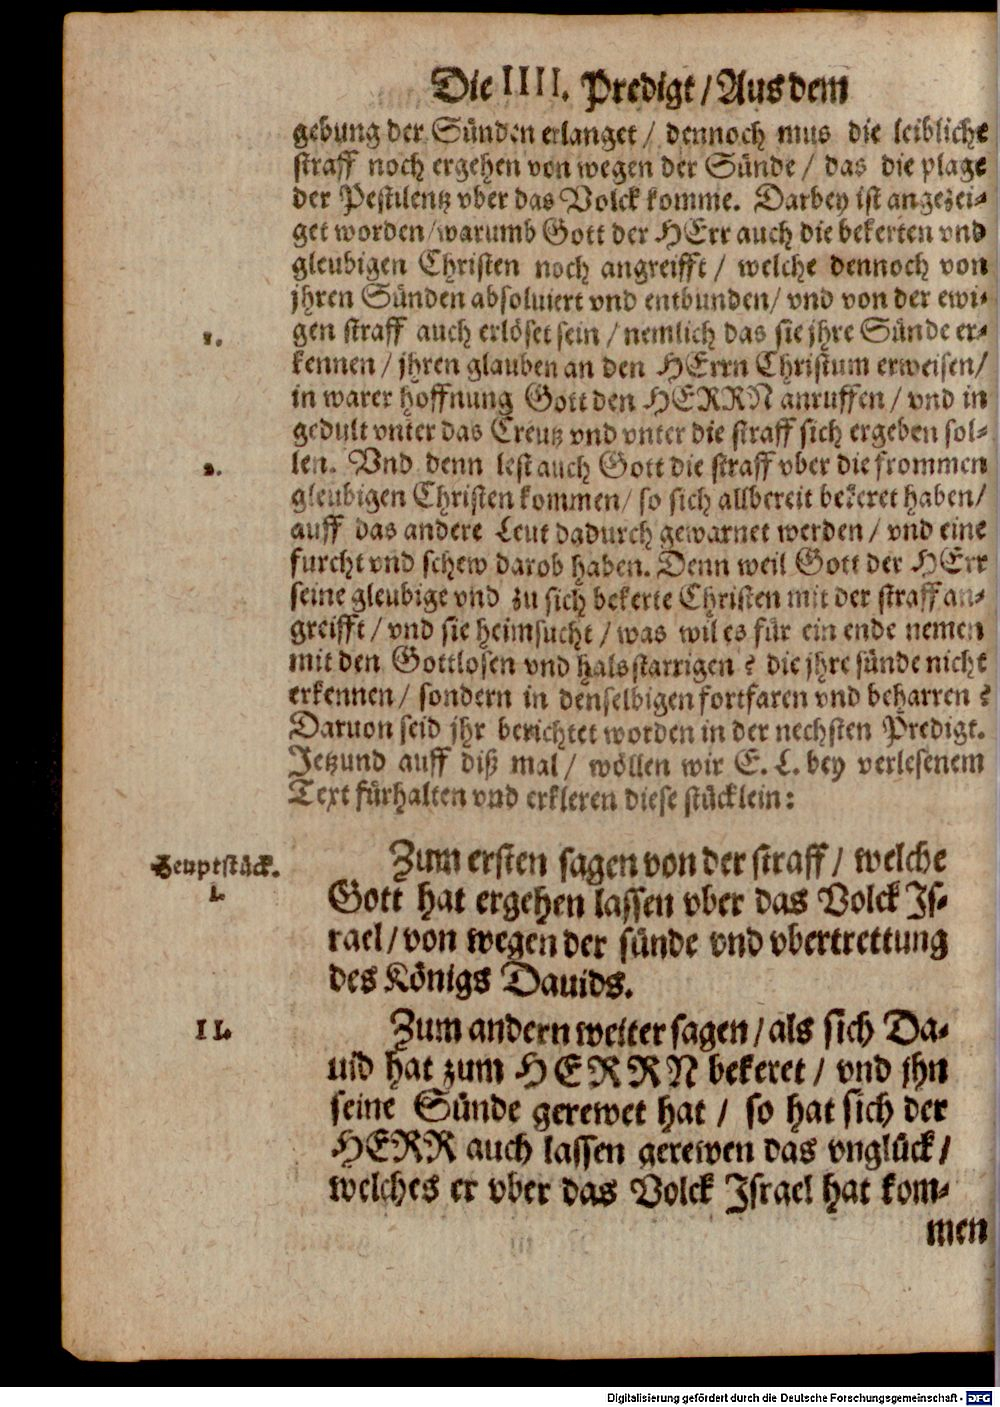 Die IIII. Predigt / Aus dem
gebung der Sünden erlanget / dennoch mus die leibliche
straff noch ergehen von wegen der Sünde / das die plage
der Pestilentz vber das Volck komme. Darbey ist angezei-
get worden / warumb Gott der HErr auch die bekerten vnd
gleubigen Christen noch angreifft / welche dennoch von
jhren Sünden absoluiert vnd entbunden / vnd von der ewi-
1.
gen straff auch erlöset sein / nemlich das sie jhre Sünde er-
kennen / jhren glauben an den HErrn Christum erweisen /
in warer hoffnung Gott den HERRN anruffen / vnd in
gedult vnter das Creutz vnd vnter die straff sich ergeben sol-
2.
len. Vnd denn lest auch Gott die straff vber die frommen
gleubigen Christen kommen / so sich allbereit bekeret haben /
auff das andere Leut dadurch gewarnet werden / vnd eine
furcht vnd schew darob haben. Denn weil Gott der HErr
seine gleubige vnd zu sich bekerte Christen mit der straff an-
greifft / vnd sie heimsucht / was wil es für ein ende nemen
mit den Gottlosen vnd halsstarrigen ? die jhre sünde nicht
erkennen / sondern in denselbigen fortfaren vnd beharren ?
Daruon seid jhr berichtet worden in der nechsten Predigt.
Jetzund auff diß mal / wöllen wir E. L. bey verlesenem
Text fürhalten vnd erkleren diese stücklein :
Heuptstück.
I.
Zum ersten sagen von der straff / welche
Gott hat ergehen lassen vber das Volck Is-
rael / von wegen der sünde vnd vbertrettung
des Königs Dauids.
II.
Zum andern weiter sagen / als sich Da-
uid hat zum HERRN bekeret / vnd jhn
seine Sünde gerewet hat / so hat sich der
HERR auch lassen gerewen das vnglück /
welches er vber das Volck Israel hat kom-
men
Digitalisierung gefördert durch die Deutsche Forschungsgemeinschaft - DFG